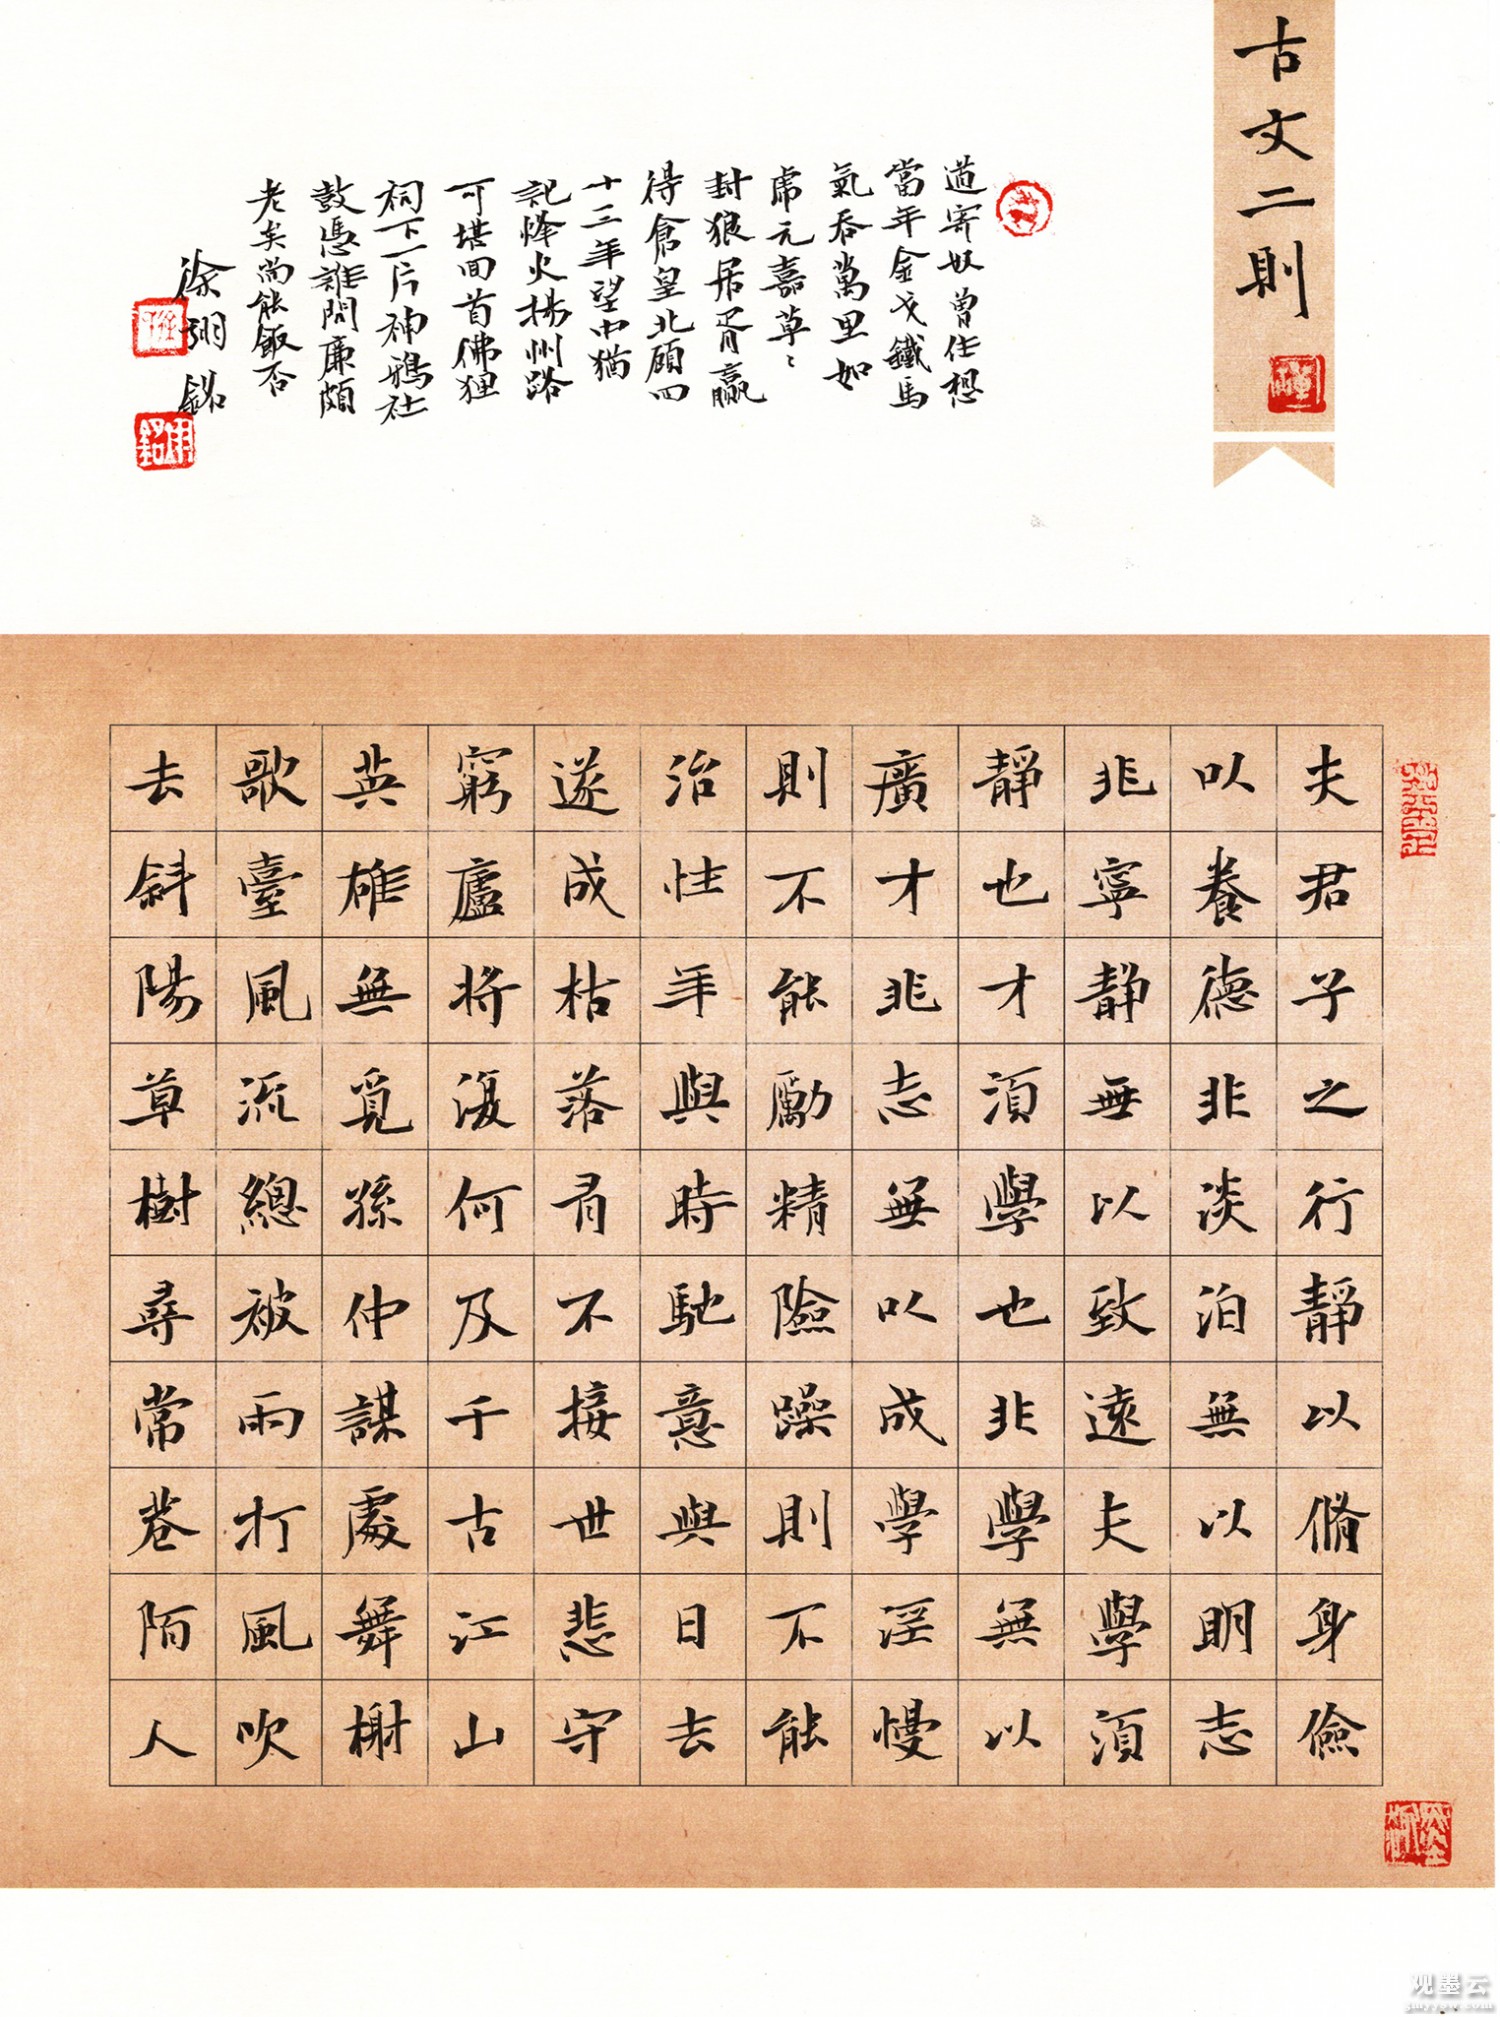 古文二則
夫君子之行靜以脩身儉
以養德非淡泊無以明志
非寧靜無以致遠夫學須
靜也才須學也非學無以
廣才非志無以成學淫慢
則不能勵精險躁則不能
治性年與時馳意與日去
遂成枯落多不接世悲守
窮廬將復何及千古江山
英雄無覓孫仲謀處舞榭
歌臺風流總被雨打風吹
去斜陽草樹尋常巷陌人
道寄奴曾住想
當年金戈鐵馬
氣吞萬里如
虎元嘉草〻
封狼居胥贏
得倉皇北顧四
十三年望中猶
記烽火揚州路
可堪回首佛狸
祠下一片神鴉社
鼓憑誰問廉頗
老矣尚能飯否
徐翊銘
观墨云